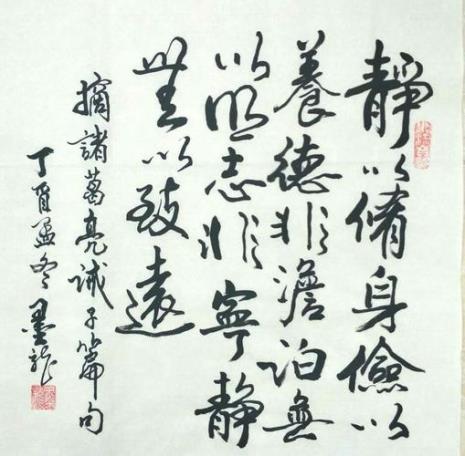 靜以脩身儉以
養德非澹泊無
以明志非寧靜
無以致遠
摘諸葛亮誡子篇句
丁酉孟冬墨龍